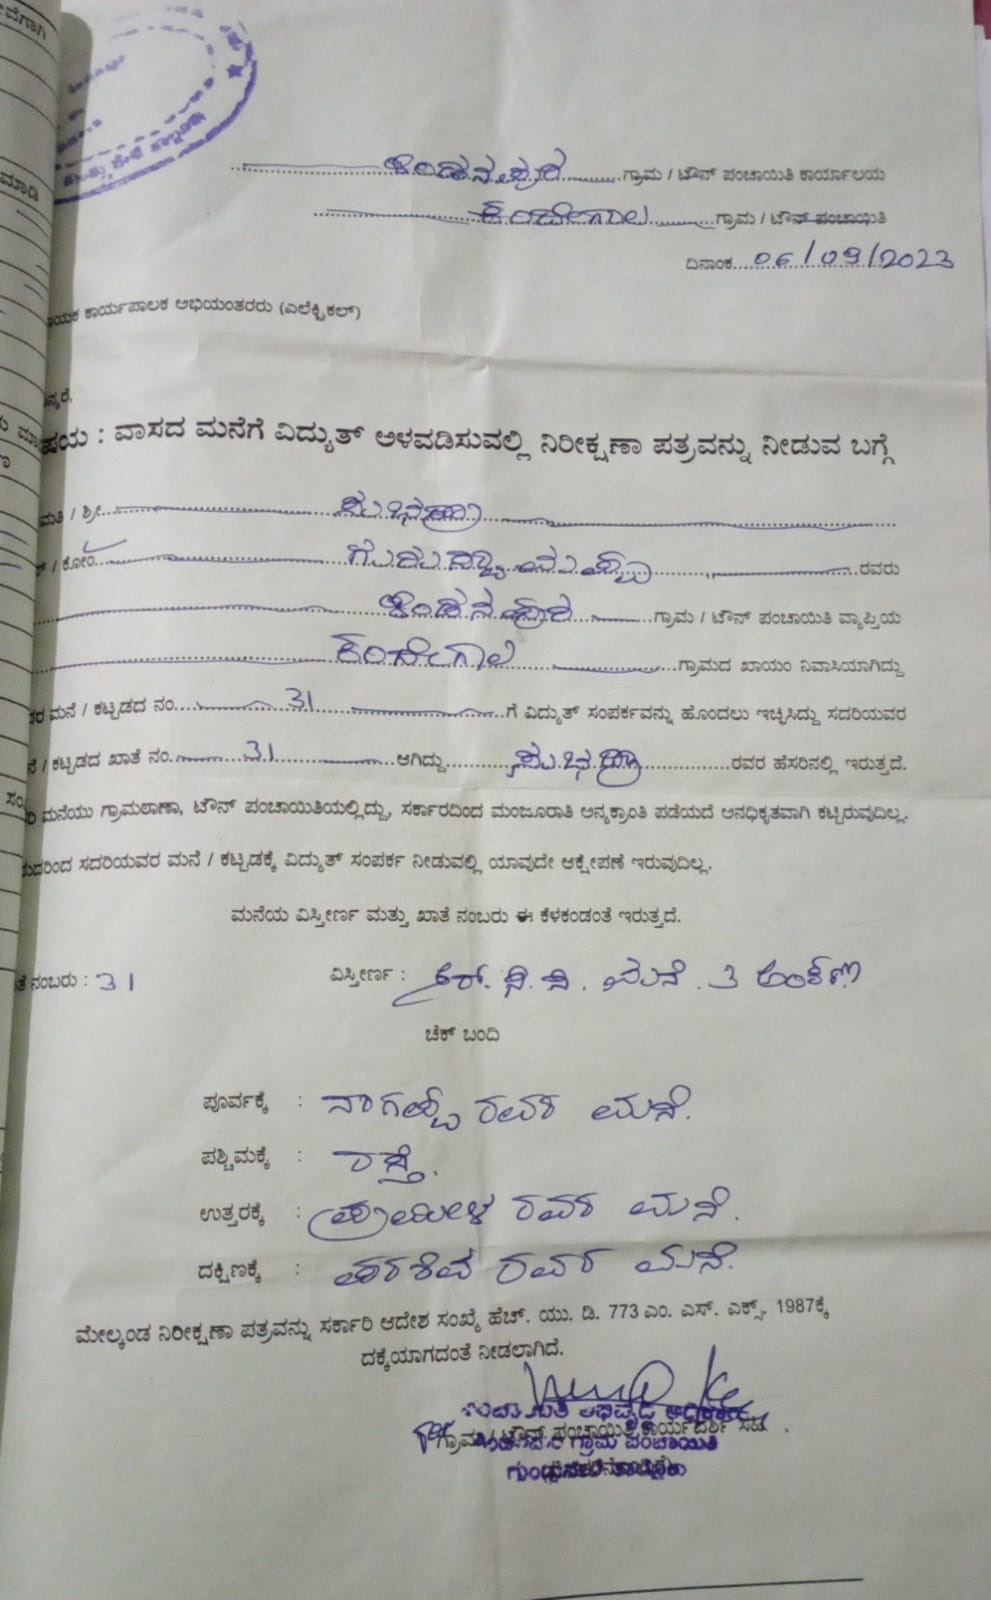 ಗ್ರಾಮ / ಟೌನ್ ಪಂಚಾಯಿತಿ ಕಾರ್ಯಾಲಯ
ಕಂದೇಗಾಲ ಗ್ರಾಮ / ಟೌನ್ ಪಂಚಾಯಿತಿ
ದಿನಾಂಕ 06/09/2023
ಕಾರ್ಯಪಾಲಕ ಅಭಿಯಂತರರು (ಎಲೆಕ್ಟ್ರಿಕಲ್)
: ವಾಸದ ಮನೆಗೆ ವಿದ್ಯುತ್ ಅಳವಡಿಸುವಲ್ಲಿ ನಿರೀಕ್ಷಣಾ ಪತ್ರವನ್ನು ನೀಡುವ ಬಗ್ಗೆ
/ ಶ್ರೀ. ಸುಭದ್ರಾ
/ ಕೋಂ ರವರು
ಗ್ರಾಮ / ಟೌನ್ ಪಂಚಾಯಿತಿ ವ್ಯಾಪ್ತಿಯ
ಕಂದೇಗಾಲ ಗ್ರಾಮದ ಖಾಯಂ ನಿವಾಸಿಯಾಗಿದ್ದು
ಮನೆ / ಕಟ್ಟಡದ ನಂ. 31 ಗೆ ವಿದ್ಯುತ್ ಸಂಪರ್ಕವನ್ನು ಹೊಂದಲು ಇಚ್ಛಿಸಿದ್ದು ಸದರಿಯವರ
/ ಕಟ್ಟಡದ ಖಾತೆ ನಂ. 31 ಆಗಿದ್ದು ಸುಭದ್ರಾ ರವರ ಹೆಸರಿನಲ್ಲಿ ಇರುತ್ತದೆ.
ಮನೆಯು ಗ್ರಾಮಠಾಣಾ, ಟೌನ್ ಪಂಚಾಯಿತಿಯಲ್ಲಿದ್ದು, ಸರ್ಕಾರದಿಂದ ಮಂಜೂರಾತಿ ಅನ್ಯಕ್ರಾಂತಿ ಪಡೆಯದೆ ಅನಧಿಕೃತವಾಗಿ ಕಟ್ಟಿರುವುದಿಲ್ಲ.
ಸದರಿಯವರ ಮನೆ / ಕಟ್ಟಡಕ್ಕೆ ವಿದ್ಯುತ್ ಸಂಪರ್ಕ ನೀಡುವಲ್ಲಿ ಯಾವುದೇ ಆಕ್ಷೇಪಣೆ ಇರುವುದಿಲ್ಲ.
ಮನೆಯ ವಿಸ್ತೀರ್ಣ ಮತ್ತು ಖಾತೆ ನಂಬರು ಈ ಕೆಳಕಂಡಂತೆ ಇರುತ್ತದೆ.
ನಂಬರು : 31 ವಿಸ್ತೀರ್ಣ : ಆರ್. ಸಿ. ಸಿ. ಮನೆ. 3 ಅಂಕಣ
ಚೆಕ್ ಬಂದಿ
ಪೂರ್ವಕ್ಕೆ : ನಾಗಪ್ಪ ರವರ ಮನೆ.
ಪಶ್ಚಿಮಕ್ಕೆ : ರಸ್ತೆ.
ಉತ್ತರಕ್ಕೆ : ಪ್ರಮೀಳ ರವರ ಮನೆ.
ದಕ್ಷಿಣಕ್ಕೆ : ರವರ ಮನೆ.
ಮೇಲ್ಕಂಡ ನಿರೀಕ್ಷಣಾ ಪತ್ರವನ್ನು ಸರ್ಕಾರಿ ಆದೇಶ ಸಂಖ್ಯೆ ಹೆಚ್. ಯು. ಡಿ. 773 ಎಂ. ಎಸ್. ಎಕ್ಸ್. 1987ಕ್ಕೆ
ದಕ್ಕೆಯಾಗದಂತೆ ನೀಡಲಾಗಿದೆ.
ಗ್ರಾಮ / ಟೌನ್ ಪಂಚಾಯಿತಿ ಕಾರ್ಯದರ್ಶಿ ಸಹಿ.
ಗ್ರಾಮ ಪಂಚಾಯಿತಿ